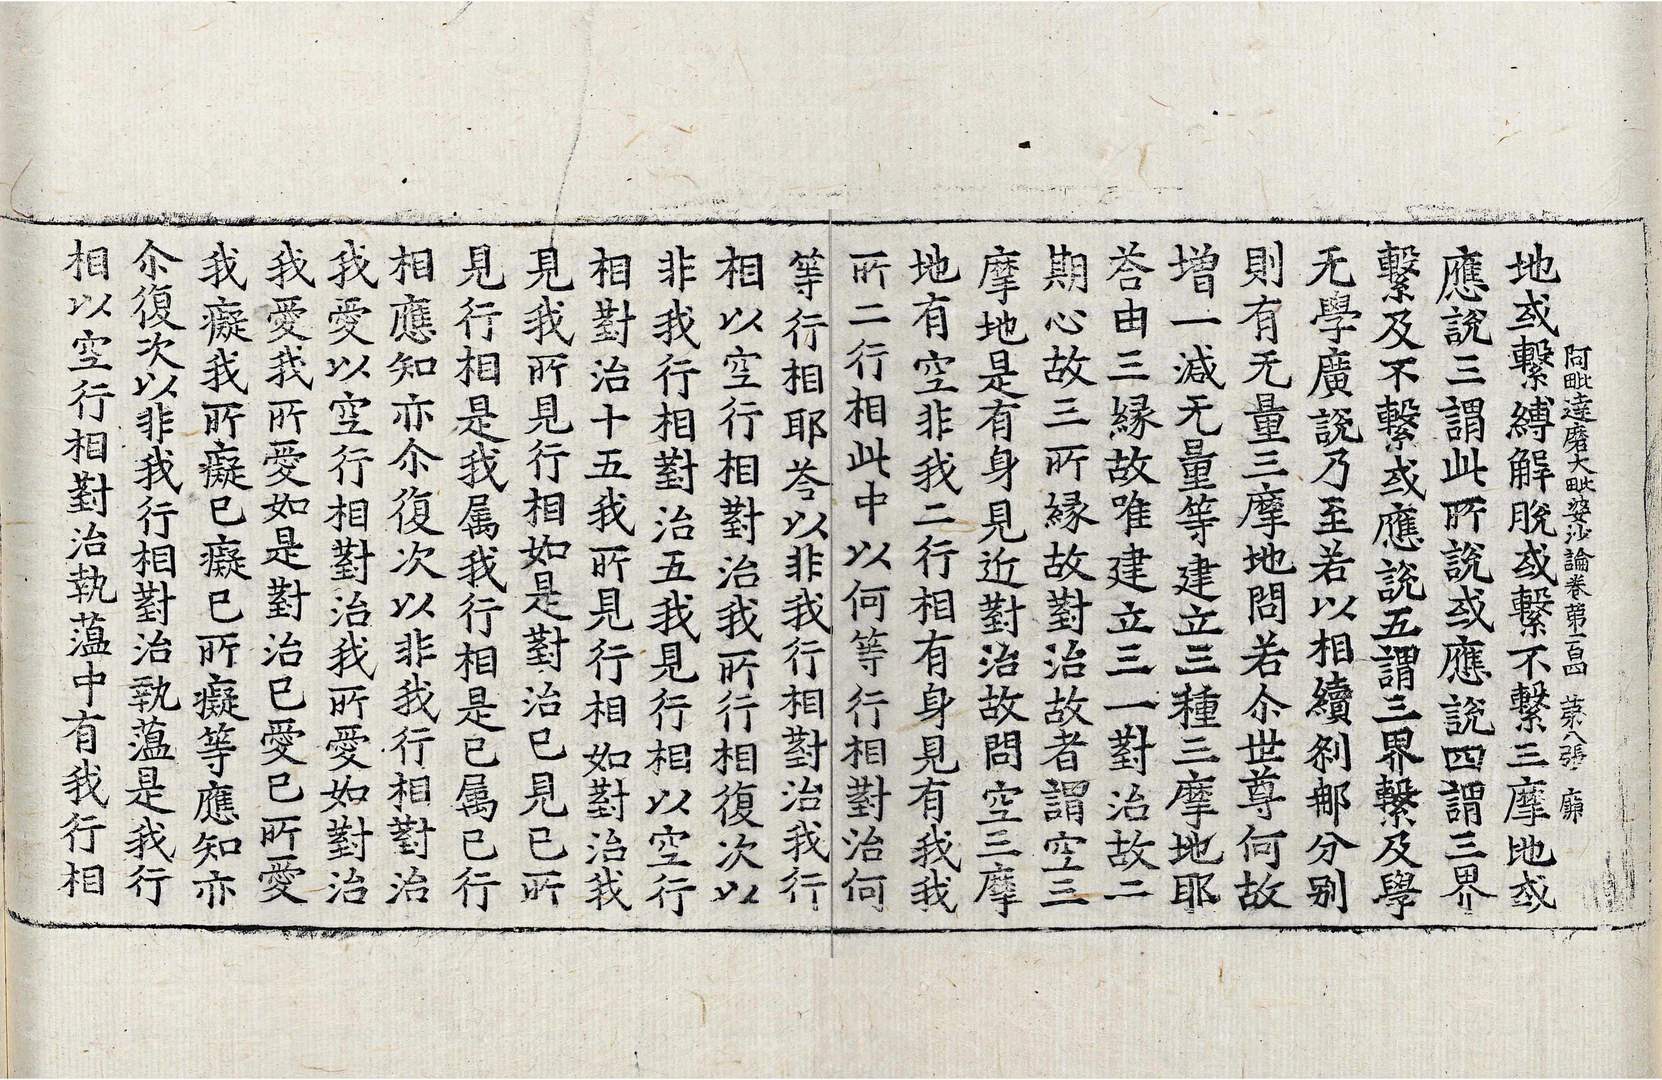 阿毗達磨大毗婆沙論卷第一百四 第八張 廉
地或繫縛解脫或繫不繫三摩地或
應說三謂此所說或應說四謂三界
繫及不繫或應說五謂三界繫及學
无學廣說乃至若以相續刹那分別
則有无量三摩地問若尒世尊何故
增一減无量等建立三種三摩地耶
荅由三緣故唯建立三一對治故二
期心故三所緣故對治故者謂空三
摩地是有身見近對治故問空三摩
地有空非我二行相有身見有我我
所二行相此中以何等行相對治何
等行相耶荅以非我行相對治我行
相以空行相對治我所行相復次以
非我行相對治五我見行相以空行
相對治十五我所見行相如對治我
見我所見行相如是對治已見已所
見行相是我属我行相是已属已行
相應知亦尒復次以非我行相對治
我愛以空行相對治我所愛如對治
我愛我所愛如是對治已愛已所愛
我癡我所癡已癡已所癡等應知亦
尒復次以非我行相對治執薀是我行
相以空行相對治執薀中有我行相